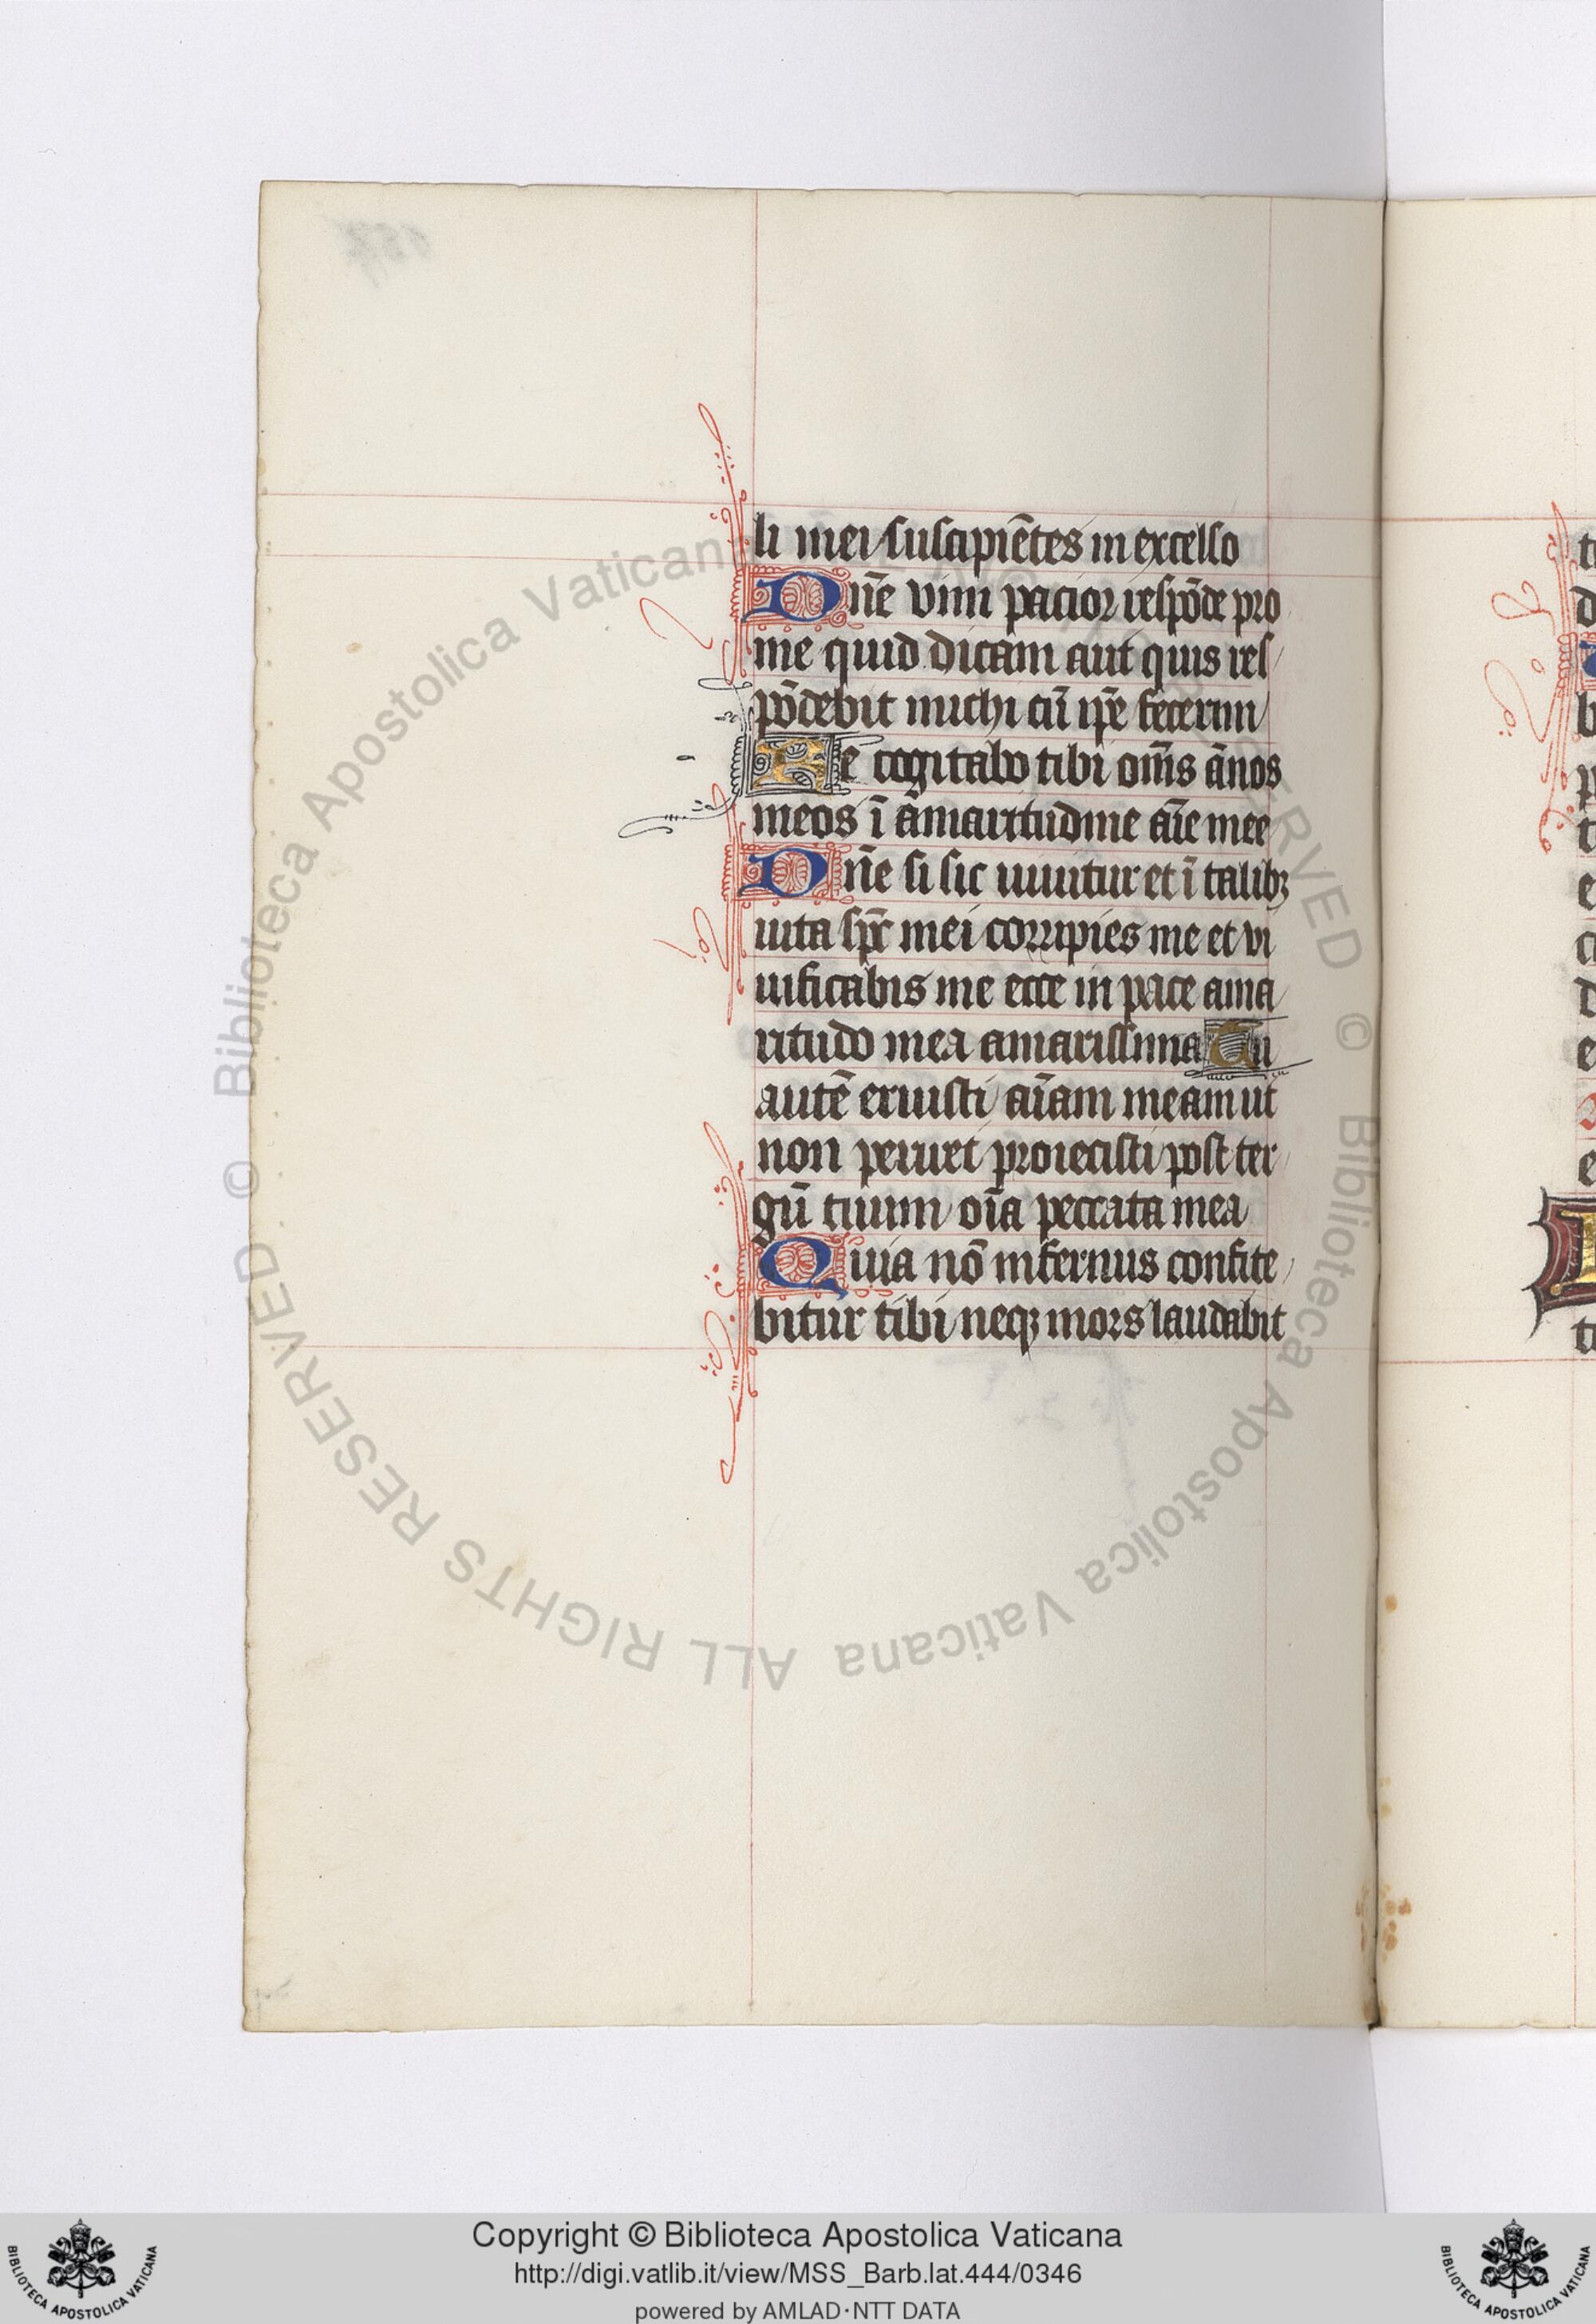 li mei suscipiētes in excelso
Dn̄e vim pacior respōde pro
me quid dicam aut quis res
pōdebit michi cū ip̄e fecerim
Re cogitabo tibi om̄s ānos
meos ī amaritudine aīe mee
Dn̄e si sic uiuitur et ī talibꝫ
uita sp̄c mei corripies me et vi
uificabis me ecce in pace ama
ritudo mea amarissima Tu
autē eruisti aīam meam ut
non periret proiecisti post ter
gū tuum oīa peccata mea
Quia nō infernus confite
bitur tibi neqꝫ mors laudabit
© Biblioteca Apostolica Vaticana ALL RIGHTS RESERVED © Biblioteca Apostolica Vaticana ALL RIGHTS RESERVED
Copyright © Biblioteca Apostolica Vaticana
http://digi.vatlib.it/view/MSS_Barb.lat.444/0346
powered by AMLAD·NTT DATA
BIBLIOTECA APOSTOLICA VATICANA
BIBLIOTECA APOSTOLICA VATICANA